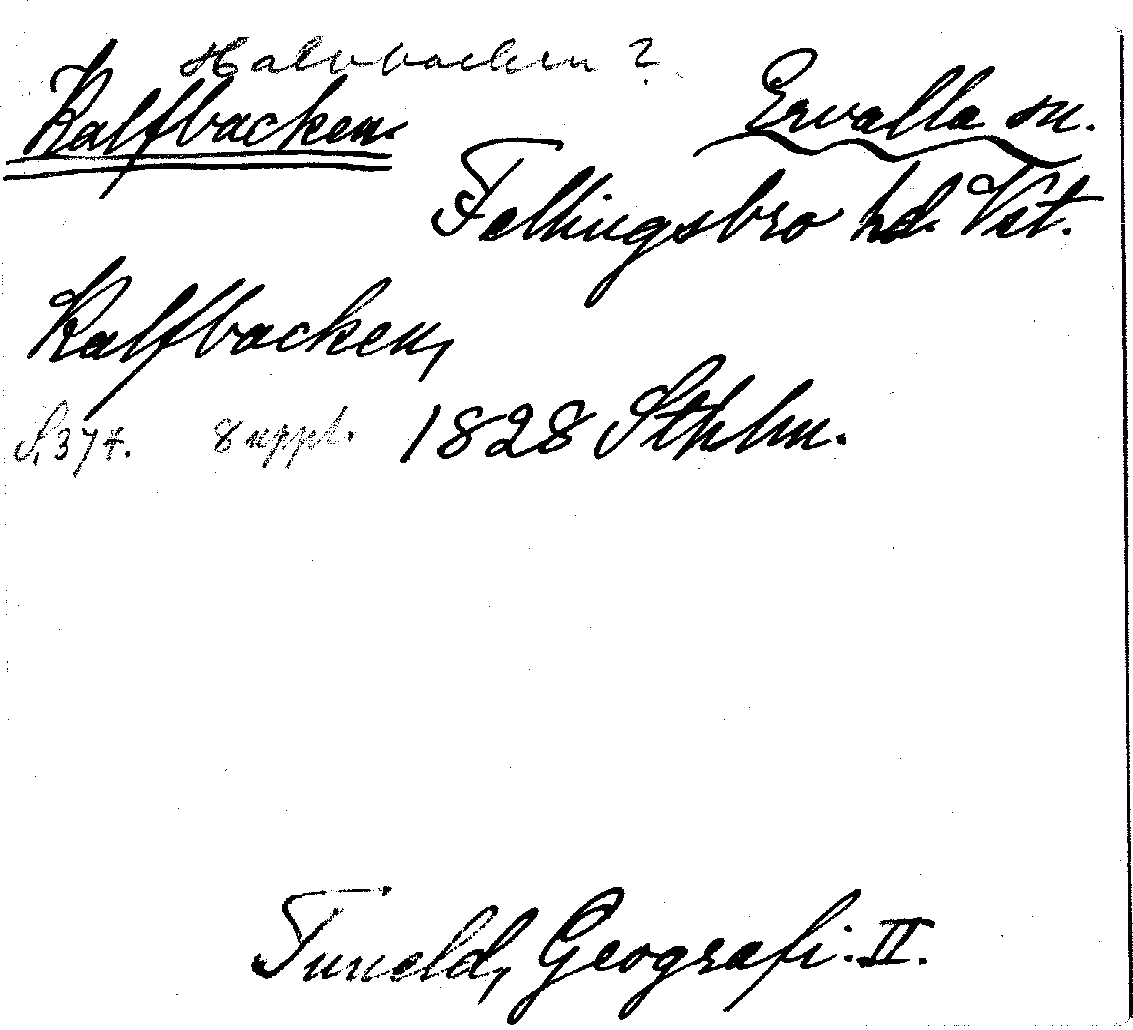 Halvbacken?
Kalfbacken. Ervalla sn.
Fellingsbro hd. Vst.
Kalfbacken,
S. 374. 8 uppl. 1828 Sthlm.
Tuneld, Geografi. II.